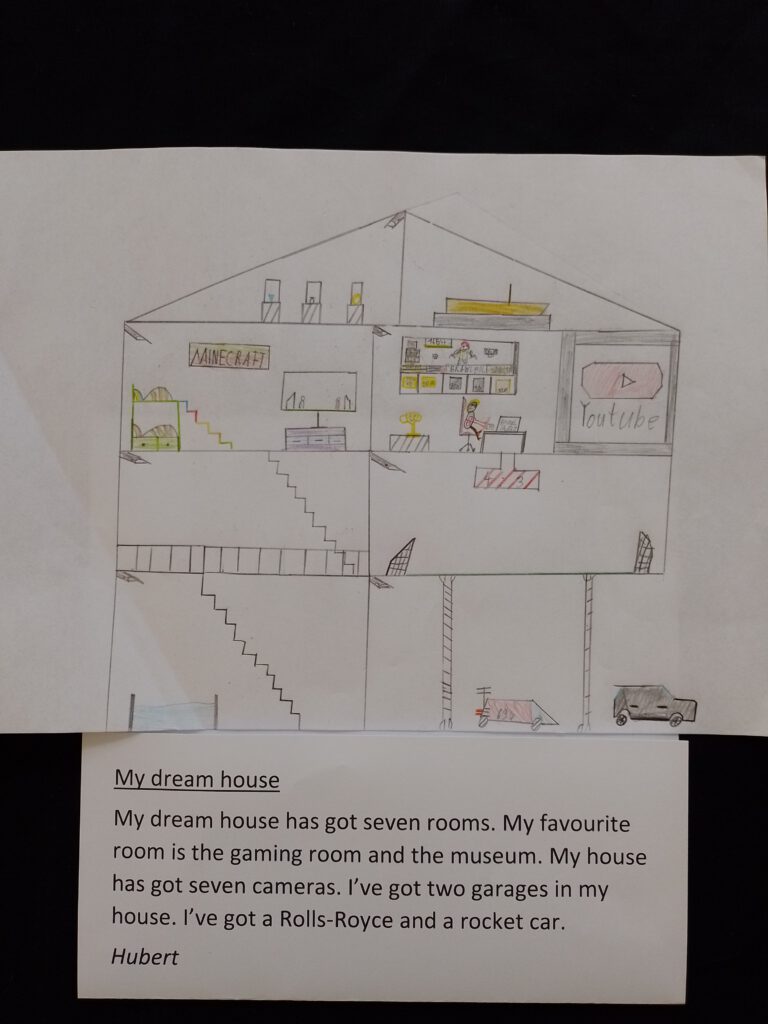 MINECRAFT
Youtube
My dream house
My dream house has got seven rooms. My favourite
room is the gaming room and the museum. My house
has got seven cameras. I've got two garages in my
house. I've got a Rolls-Royce and a rocket car.
Hubert